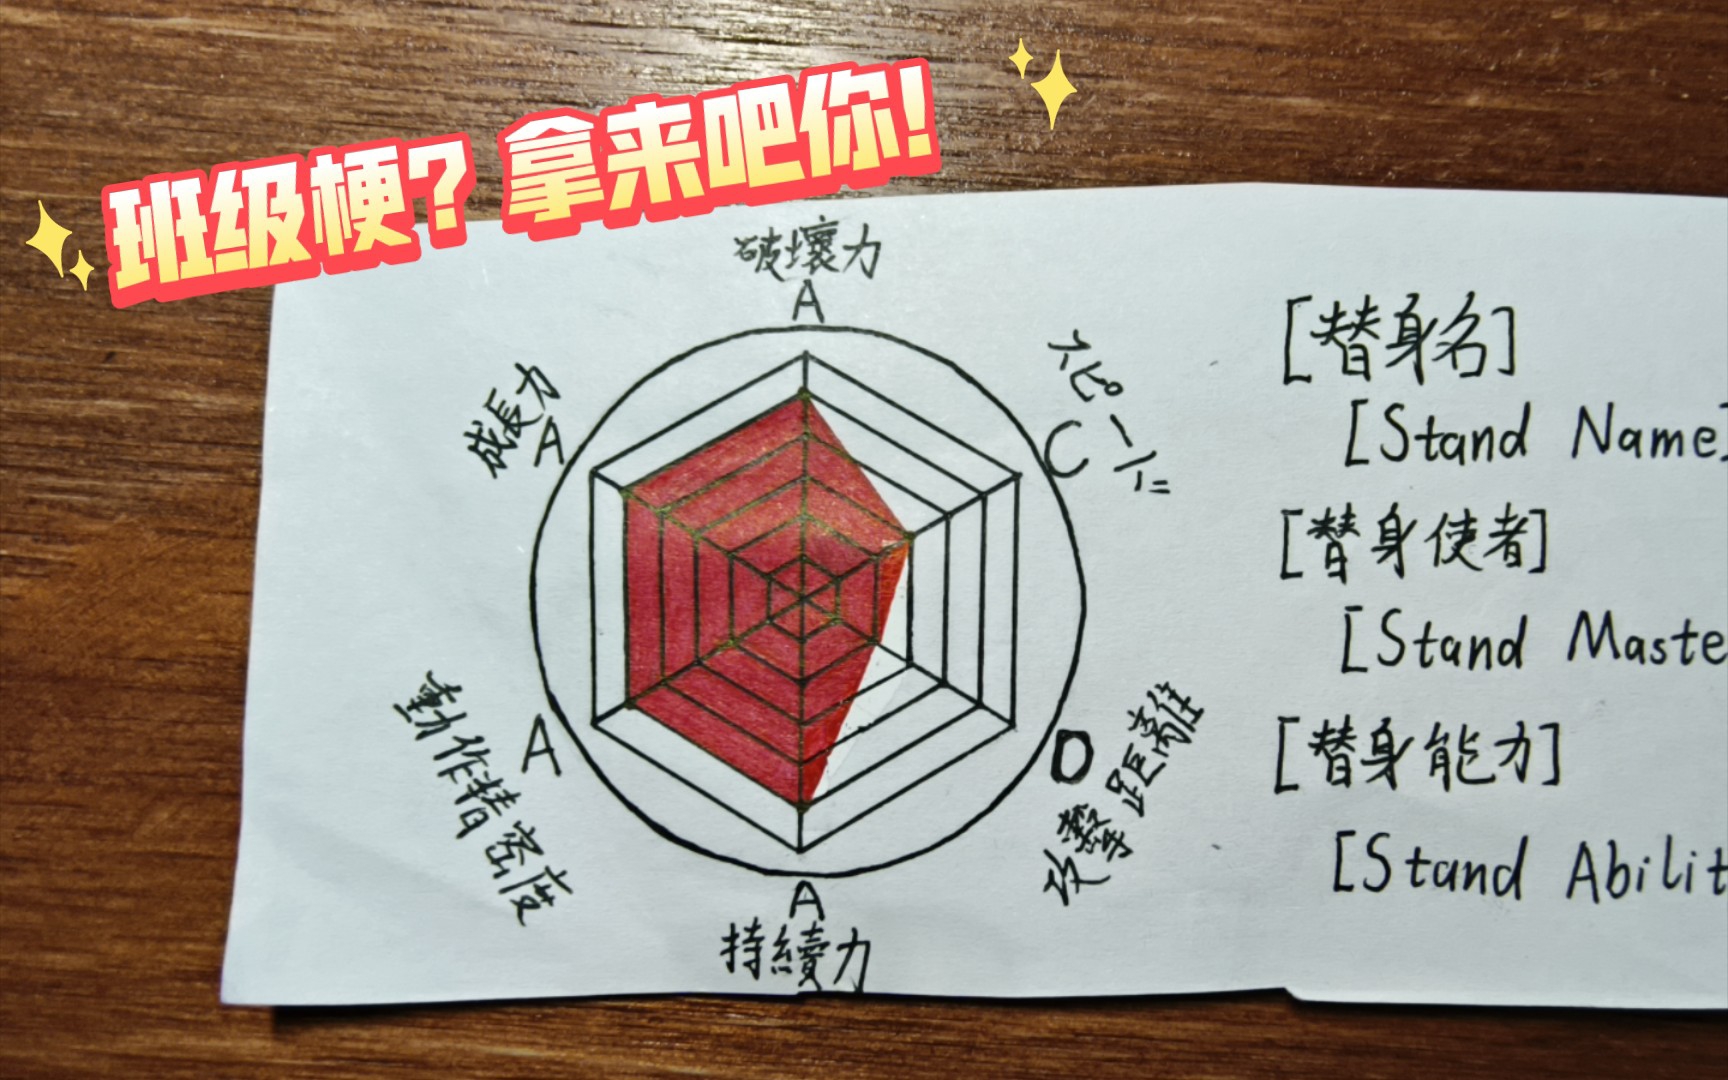 班级梗?拿来吧你!
破壞力
A
スピード
C
成長力
A
動作精密度
A
攻擊距離
D
持續力
A
[替身名]
[Stand Name]
[替身使者]
[Stand Maste
[替身能力]
[Stand Abilit